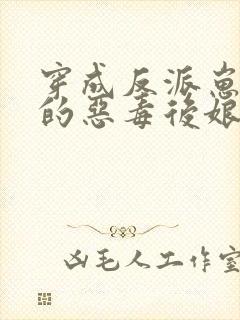 穿成反派崽
的惡毒後娘
凶毛人工作室